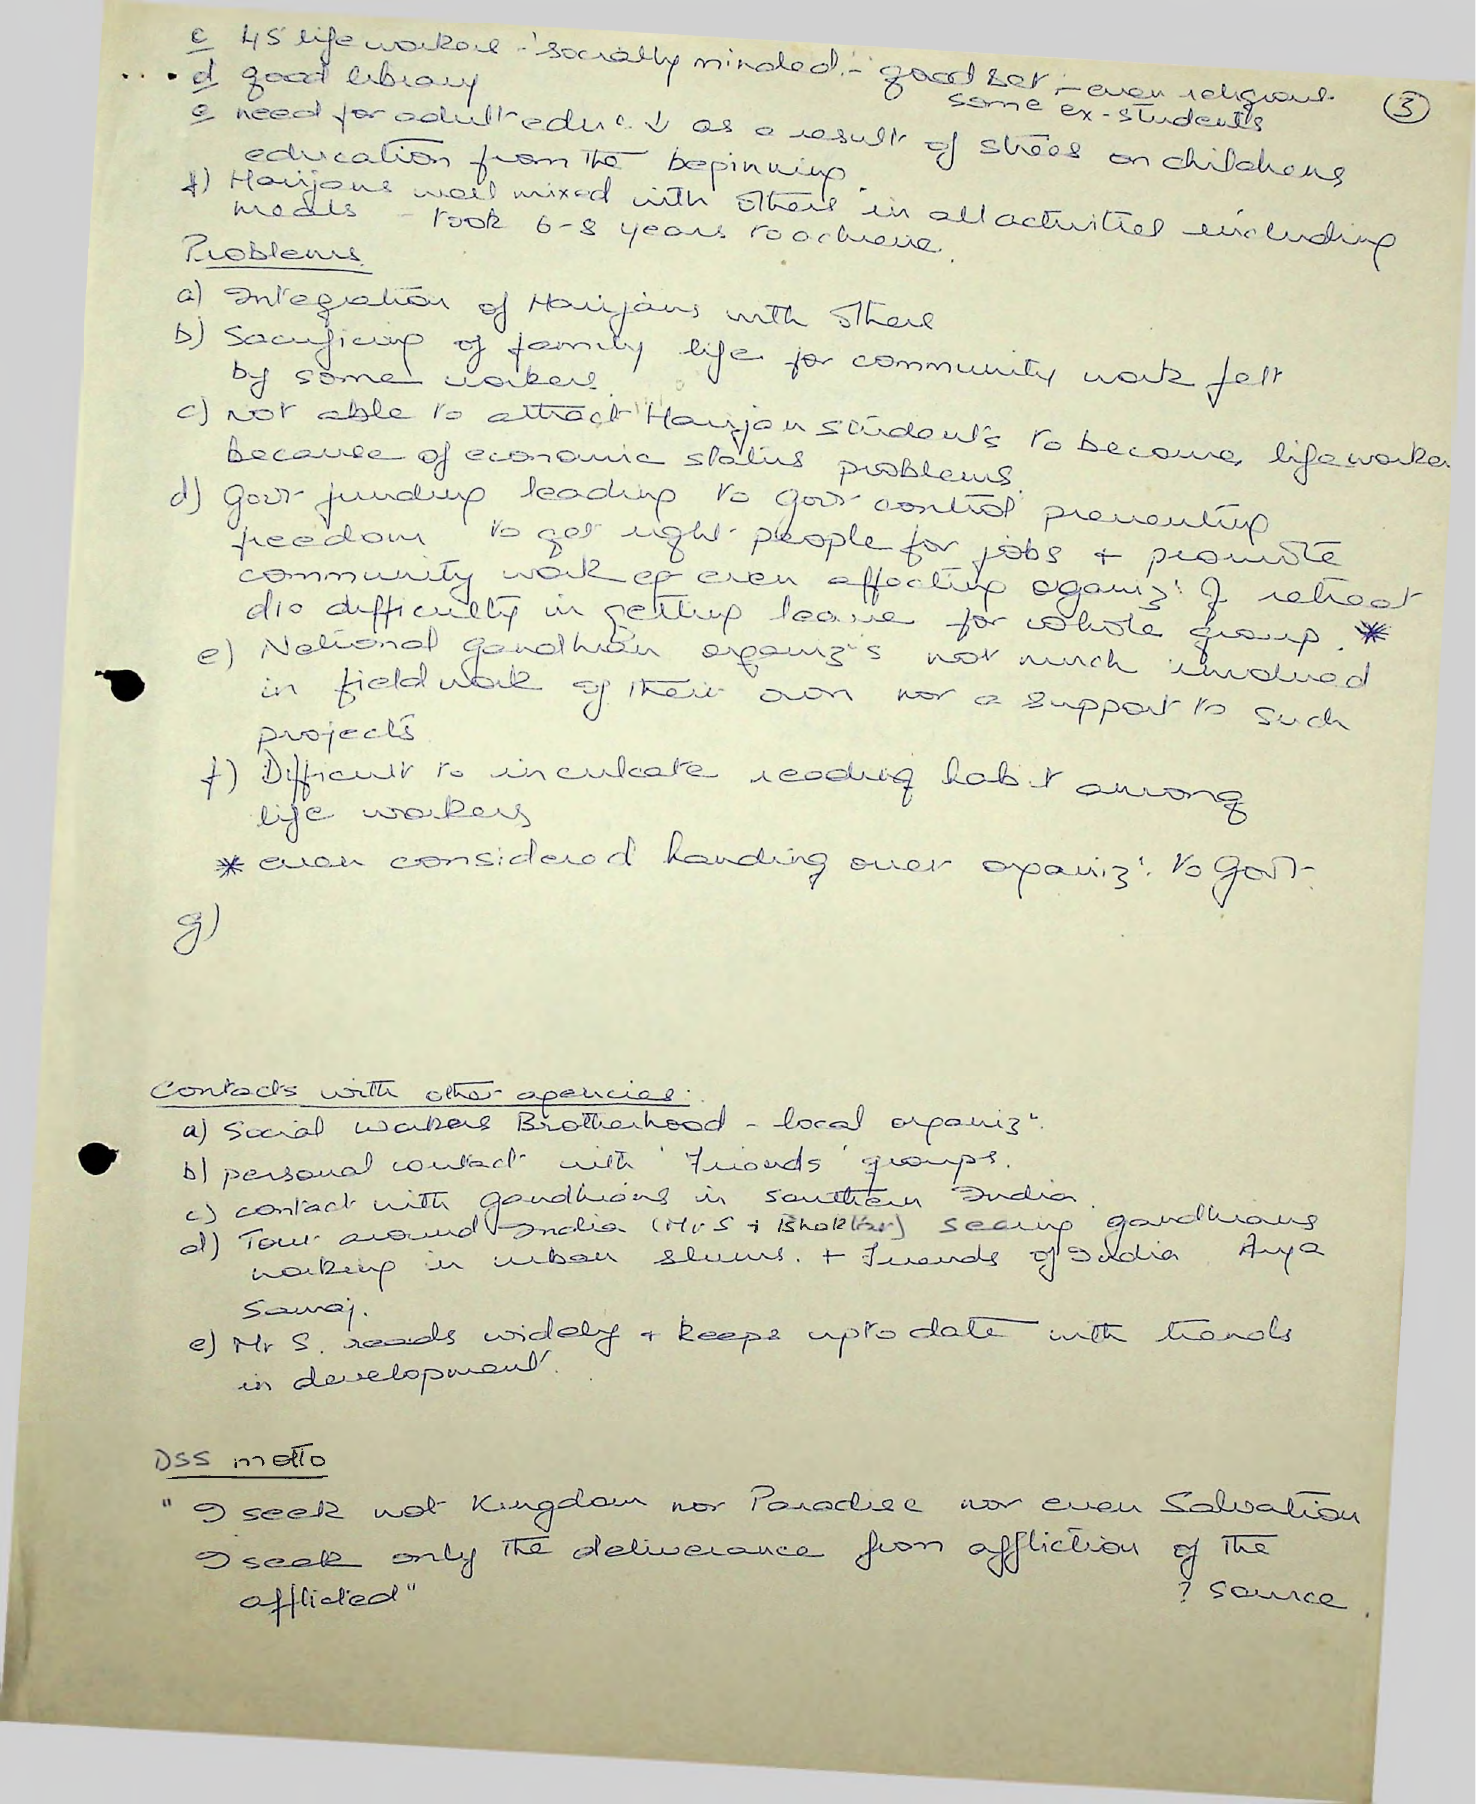 ③
c 45 life workers - 'socially minded' - good set - even religious
some ex-students
d good library
e need for adult educ. ↓ as a result of stress on childrens
education from the beginning
f) Harijans well mixed with others in all activities including
meals - took 6-8 years to achieve.
Problems
a) Integration of Harijans with others
b) Sacrificing of family life for community work felt
by some workers.
c) not able to attract Harijan students to become life worker
because of economic status problems.
d) Govt funding leading to govt control preventing
freedom to get right people for jobs + promote
community work eg even affecting oganiz. of retreat
d/o difficulty in getting leave for whole group. *
e) National gandhian organiz's not much involved
in field work of their own nor a support to such
projects
f) Difficult to inculcate reading habit among
life workers
* even considered handing over organiz. to Govt.
g)
Contacts with other agencies.
a) Social workers Brotherhood - local organiz".
b) personal contact with 'Friends' groups.
c) contact with gandhians in southern India.
d) Tour around India (Mr S + Bhaktar) seeing gandhians
working in urban slums. + Friends of India Arya
Samaj.
e) Mr S. reads widely + keeps upto date with trends
in development.
DSS motto
" I seek not Kingdom nor Paradise nor even Salvation
I seek only the deliverance from affliction of the
afflicted"
? source.